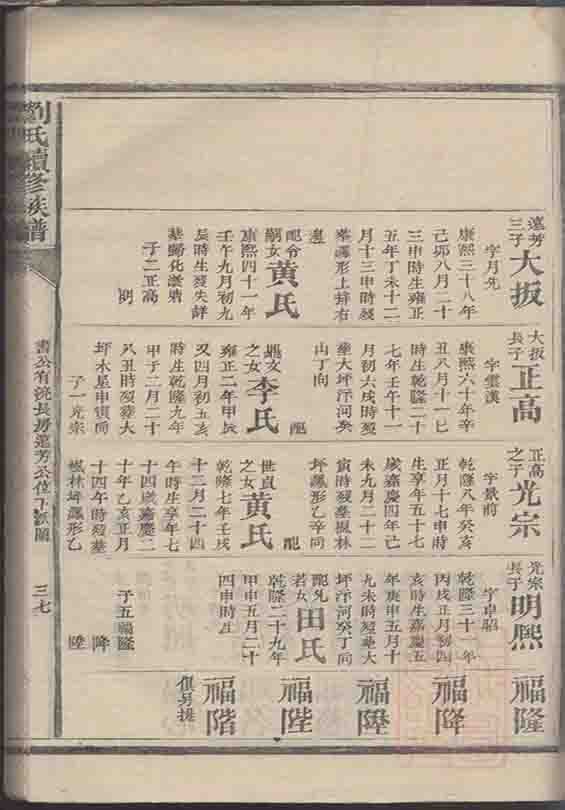 劉氏續修族譜
書公有浣長房遠芳公位下派圖
三七
遠芳三子 大扳
字月先
康熙三十八年
己卯八月二十
三申時生雍正
五年丁未十二
月十三申時歿
配令嗣女 黃氏
康熙四十一年
壬午九月初九
辰時生歿失詳
子二正高
明
大扳長子 正高
字雲漢
康熙六十年辛
丑八月十一巳
時生乾隆二十
七年壬午十一
月初六戌時歿
葬大坪汙河癸
山丁向
配
之女 李氏
雍正二年甲辰
又四月初五亥
時生乾隆九年
甲子二月二十
八丑時歿葬大
坪木星申寅向
子一光宗
正高之子 光宗
字景前
乾隆八年癸亥
正月十七申時
生享年五十七
歲嘉慶四年己
未九月二十二
寅時歿葬楓林
坪瓢形乙辛向
配
世貞之女 黃氏
乾隆七年壬戌
十二月二十四
午時生享年七
十四歲嘉慶二
十年乙亥正月
十四午時歿葬
楓林坪瓢形乙
光宗長子 明熙
字卓昭
乾隆三十一年
丙戌正月初四
亥時生嘉慶五
年庚申五月十
九未時歿葬大
坪汙河癸丁向
配先若女 田氏
乾隆二十九年
甲申五月二十
四申時生
子五福隆
降
陞
福隆
福降
福陞
福陛
福階
俱另提